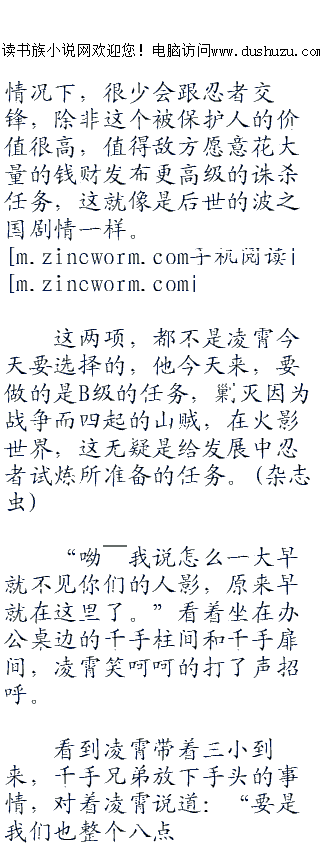 读书族小说网欢迎您！电脑访问www.dushuzu.com
情况下，很少会跟忍者交
锋，除非这个被保护人的价
值很高，值得敌方愿意花大
量的钱财发布更高级的诛杀
任务，这就像是后世的波之
国剧情一样。
[m.zincworm.com手机阅读|
[m.zincworm.com|
这两项，都不是凌霄今
天要选择的，他今天来，要
做的是B级的任务，剿灭因为
战争而四起的山贼，在火影
世界，这无疑是给发展中忍
者试炼所准备的任务。(杂志
虫)
“呦——我说怎么一大早
就不见你们的人影，原来早
就在这里了。”看着坐在办
公桌边的千手柱间和千手扉
间，凌霄笑呵呵的打了声招
呼。
看到凌霄带着三小到
来，千手兄弟放下手头的事
情，对着凌霄说道：“要是
我们也整个八点